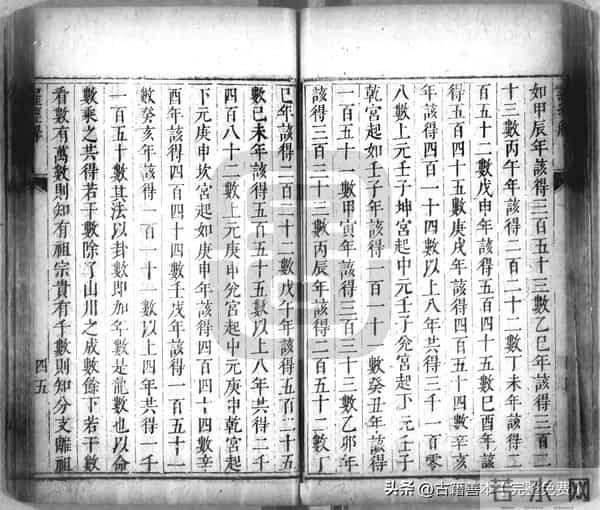 如甲辰年該得三百五十三數乙巳年該得三百二
十三數丙午年該得二百二十二數丁未年該得二
百五十二數戊申年該得五百四十五數己酉年該
得五百四十五數庚戌年該得四百五十四數辛亥
年該得四百一十四數以上八年共得三千一百零
八數上元壬子坤宮起中元壬子兌宮起下元壬子
乾宮起如壬子年該得一百一十一數癸丑年該得
一百五十一數甲寅年該得三百三十三數乙卯年
該得三百三十三數丙辰年該得二百五十二數丁
巳年該得二百二十二數戊午年該得五百二十五
數己未年該得五百五十五數以上八年共得二千
四百八十二數上元庚申兌宮起中元庚申乾宮起
下元庚申坎宮起如庚申年該得四百四十四數辛
酉年該得四百四十四數壬戌年該得一百五十一
數癸亥年該得一百一十一數以上四年共得一千
一百五十數其法以卦數即加年數是龍數也以命
數乘之共得若干數除了山川之成數餘下若干數
看數有萬數則知有祖宗貴有千數則知分支離祖
四五
头条 @古籍善本 完整免费